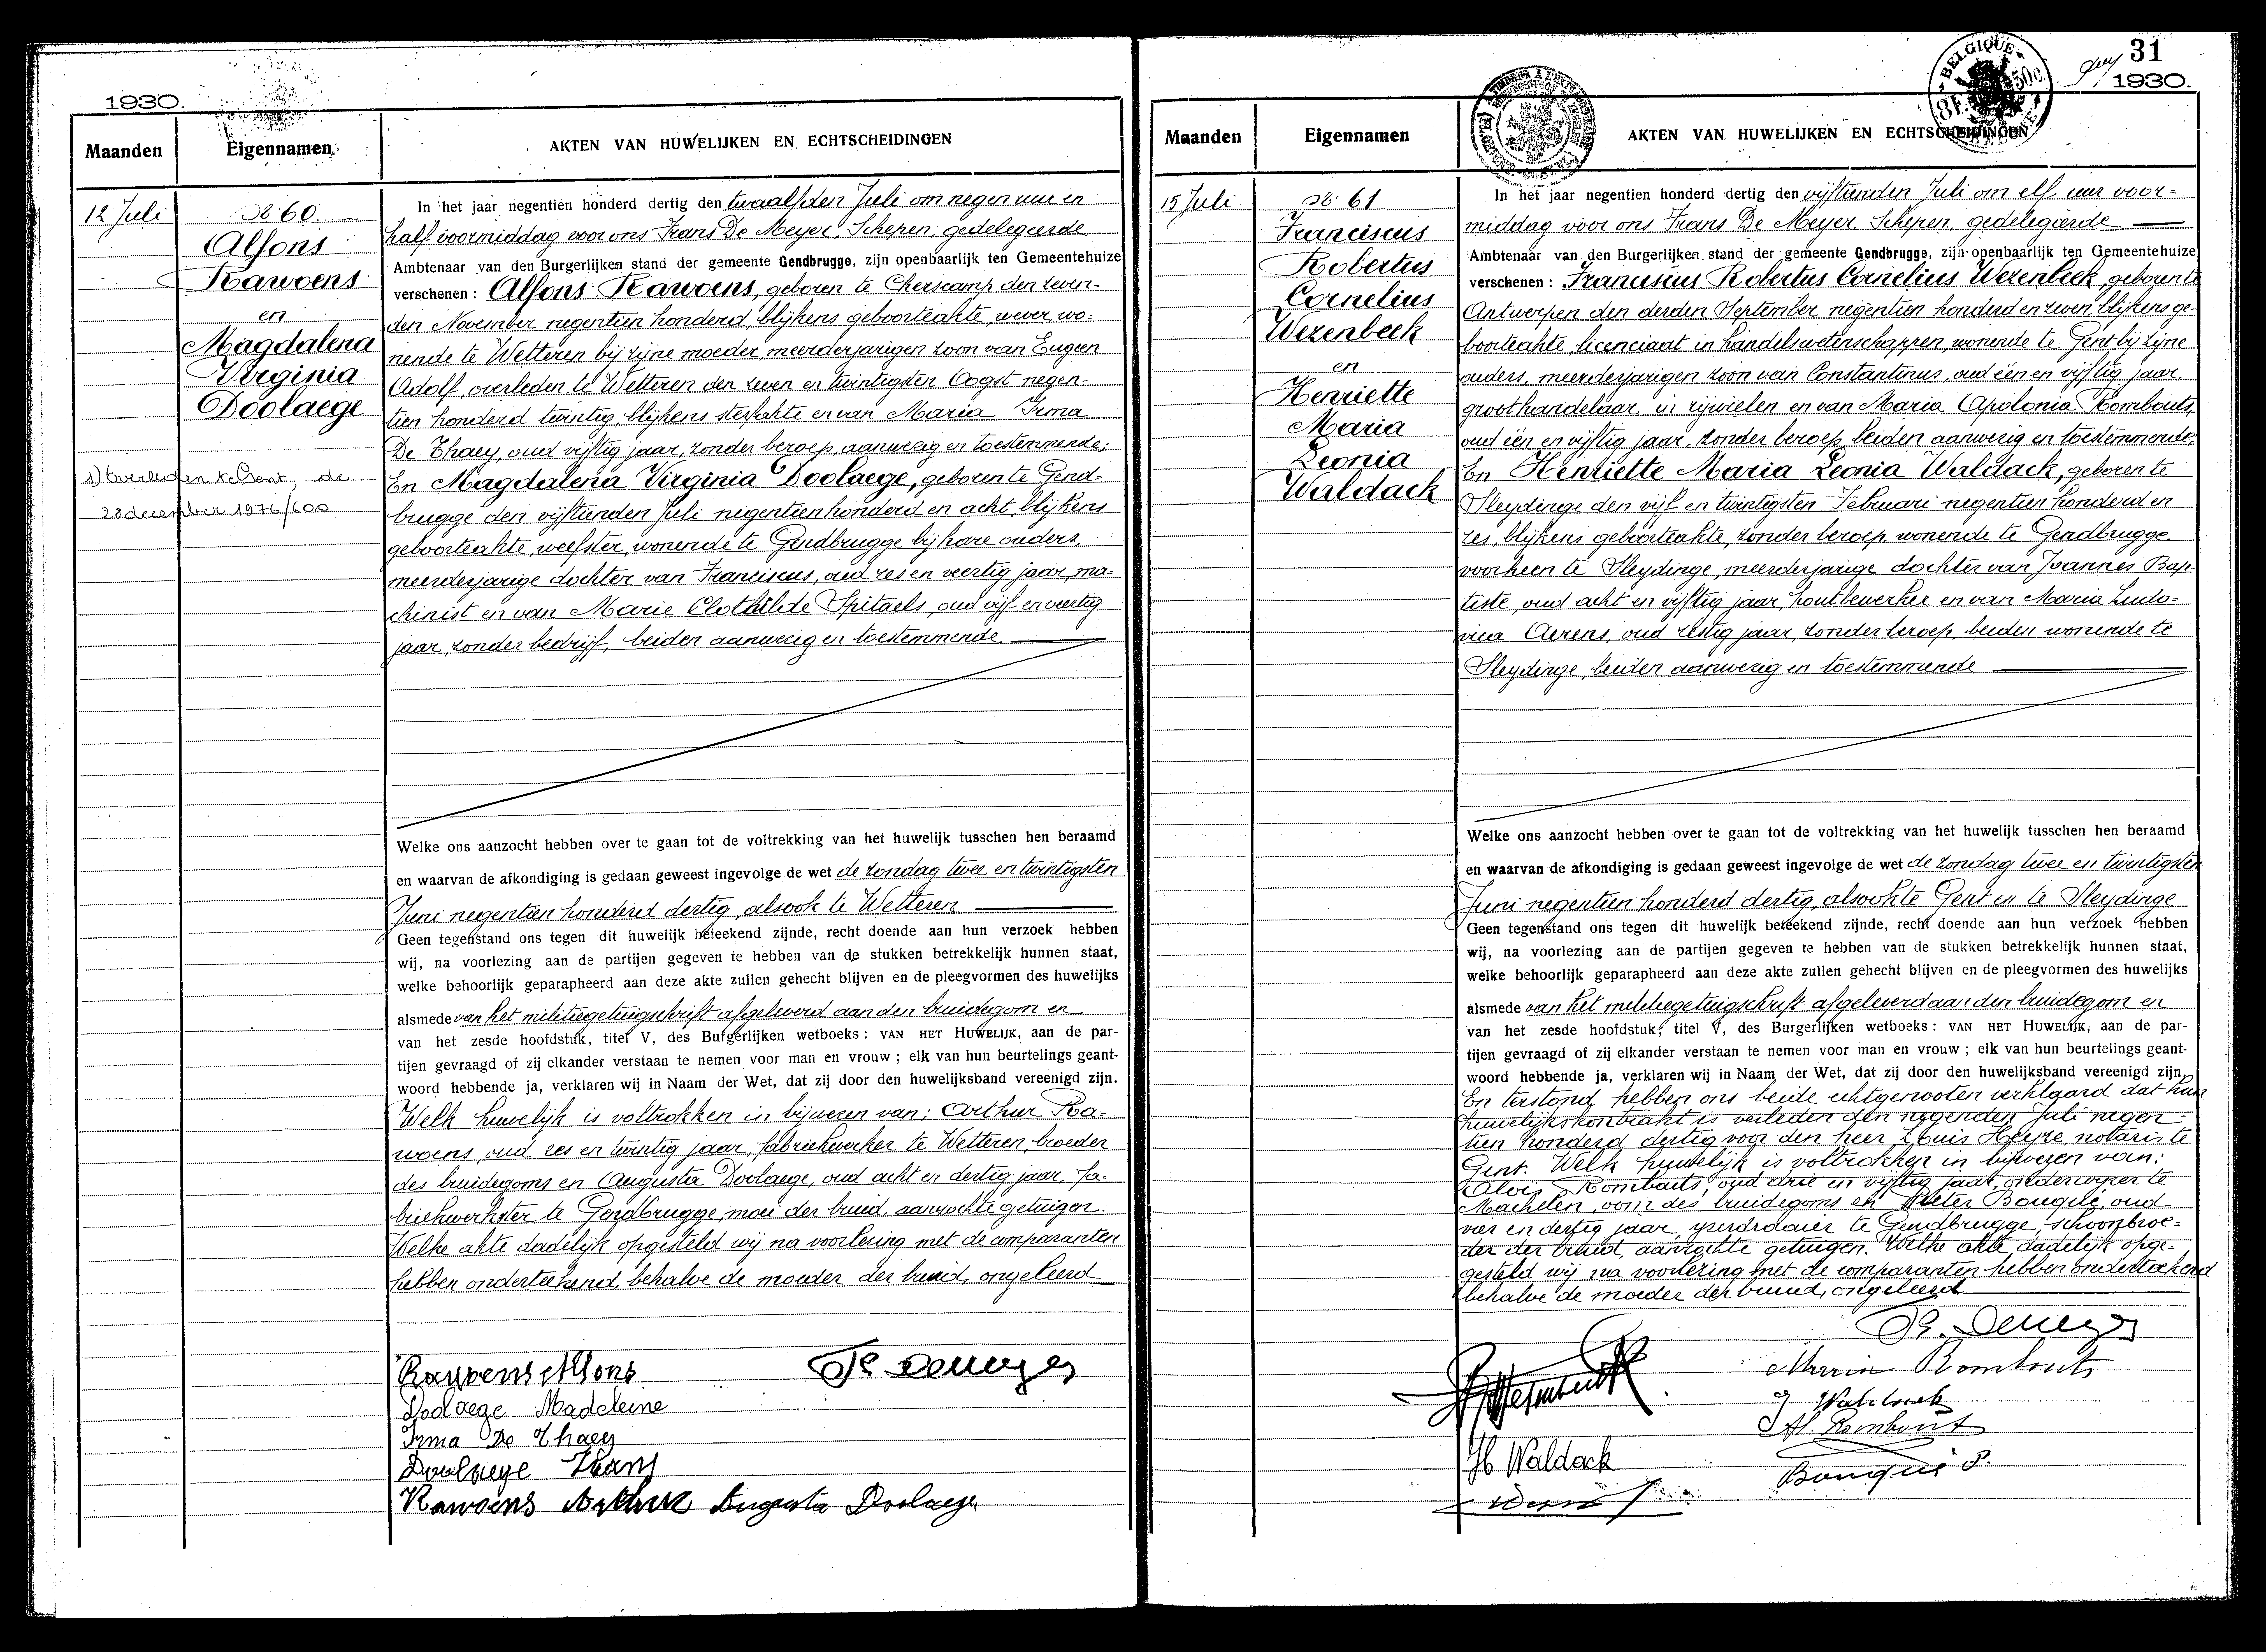 1930.
Maanden
Eigennamen
AKTEN VAN HUWELIJKEN EN ECHTSCHEIDINGEN
12 Juli
No 60
Alfons
Rawoens
en
Magdalena
Virginia
Doolaege
1) Overleden te Gent, de
28 december 1976/600
In het jaar negentien honderd dertig den twaalfden Juli om negen uur en
half voormiddag voor ons Frans De Meyer, Schepen, gedelegeerde
Ambtenaar van den Burgerlijken stand der gemeente Gendbrugge, zijn openbaarlijk ten Gemeentehuize
verschenen : Alfons Rawoens, geboren te Cherscamp den zeven-
den November negentien honderd, blijkens geboorteakte, wever, wo-
nende te Wetteren bij zijne moeder, meerderjarigen zoon van Eugeen
Adolf, overleden te Wetteren den zeven en twintigsten Oogst negen-
tien honderd twintig, blijkens sterfakte en van Maria Irma
De Thaey, oud vijftig jaar, zonder beroep, aanwezig en toestemmende;
En Magdalena Virginia Doolaege, geboren te Gend-
brugge den vijftienden Juli negentien honderd en acht, blijkens
geboorteakte, weefster, wonende te Gendbrugge bij hare ouders,
meerderjarige dochter van Franciscus, oud zes en veertig jaar, ma-
chinist en van Marie Clothilde Spitaels, oud vijf en veertig
jaar, zonder bedrijf, beiden aanwezig en toestemmende
Welke ons aanzocht hebben over te gaan tot de voltrekking van het huwelijk tusschen hen beraamd
en waarvan de afkondiging is gedaan geweest ingevolge de wet de zondag twee en twintigsten
Juni negentien honderd dertig, alsook te Wetteren
Geen tegenstand ons tegen dit huwelijk beteekend zijnde, recht doende aan hun verzoek hebben
wij, na voorlezing aan de partijen gegeven te hebben van de stukken betrekkelijk hunnen staat,
welke behoorlijk geparapheerd aan deze akte zullen gehecht blijven en de pleegvormen des huwelijks
alsmede van het militiegetuigschrift afgeleverd aan den bruidegom en
van het zesde hoofdstuk, titel V, des Burgerlijken wetboeks : VAN HET HUWELIJK, aan de par-
tijen gevraagd of zij elkander verstaan te nemen voor man en vrouw ; elk van hun beurtelings geant-
woord hebbende ja, verklaren wij in Naam der Wet, dat zij door den huwelijksband vereenigd zijn.
Welk huwelijk is voltrokken in bijwezen van: Arthur Ra-
woens, oud zes en twintig jaar, fabriekwerker te Wetteren, broeder
des bruidegoms en Augusta Doolaege, oud acht en dertig jaar, fa-
briekwerkster te Gendbrugge, moei der bruid, aanzochte getuigen.
Welke akte dadelijk opgesteld wij na voorlezing met de comparanten
hebben onderteekend, behalve de moeder der bruid, ongeleerd
Rawoens Alfons
Fr. Demeyer
Doolaege Madeleine
Irma De Thaey
Doolaege Frans
Rawoens Arthur Augusta Doolaege
31
1930.
BELGIQUE
BELGIË
Maanden
Eigennamen
AKTEN VAN HUWELIJKEN EN ECHTSCHEIDINGEN
15 Juli
No 61
Franciscus
Robertus
Cornelius
Wezenbeek
en
Henriette
Maria
Leonia
Waldack
In het jaar negentien honderd dertig den vijftienden Juli om elf uur voor-
middag voor ons Frans De Meyer, Schepen, gedelegeerde
Ambtenaar van den Burgerlijken stand der gemeente Gendbrugge, zijn openbaarlijk ten Gemeentehuize
verschenen : Franciscus Robertus Cornelius Wezenbeek, geboren te
Antwerpen den derden September negentien honderd en zeven, blijkens ge-
boorteakte, licenciaat in handelswetenschappen, wonende te Gent bij zijne
ouders, meerderjarigen zoon van Constantinus, oud één en vijftig jaar,
groothandelaar in rijwielen en van Maria Apolonia Rombouts,
oud één en vijftig jaar, zonder beroep, beiden aanwezig en toestemmende;
En Henriette Maria Leonia Waldack, geboren te
Sleydinge den vijf en twintigsten Februari negentien honderd en
zes, blijkens geboorteakte, zonder beroep, wonende te Gendbrugge
voorheen te Sleydinge, meerderjarige dochter van Joannes Bap-
tiste, oud acht en vijftig jaar, houtbewerker en van Maria Ludo-
vica Aerens, oud zestig jaar, zonder beroep, beiden wonende te
Sleydinge, beiden aanwezig en toestemmende
Welke ons aanzocht hebben over te gaan tot de voltrekking van het huwelijk tusschen hen beraamd
en waarvan de afkondiging is gedaan geweest ingevolge de wet de zondag twee en twintigsten
Juni negentien honderd dertig, alsook te Gent en te Sleydinge
Geen tegenstand ons tegen dit huwelijk beteekend zijnde, recht doende aan hun verzoek hebben
wij, na voorlezing aan de partijen gegeven te hebben van de stukken betrekkelijk hunnen staat,
welke behoorlijk geparapheerd aan deze akte zullen gehecht blijven en de pleegvormen des huwelijks
alsmede van het militiegetuigschrift afgeleverd aan den bruidegom en
van het zesde hoofdstuk, titel V, des Burgerlijken wetboeks : VAN HET HUWELIJK, aan de par-
tijen gevraagd of zij elkander verstaan te nemen voor man en vrouw ; elk van hun beurtelings geant-
woord hebbende ja, verklaren wij in Naam der Wet, dat zij door den huwelijksband vereenigd zijn.
En terstond hebben ons beide echtgenooten verklaard dat hun
huwelijkskontrakt is verleden den negenden Juli negen-
tien honderd dertig voor den heer Louis Heyse, notaris te
Gent. Welk huwelijk is voltrokken in bijwezen van:
Alois Rombauts, oud drie en vijftig jaar, onderwijzer te
Machelen, oom des bruidegoms en Pieter Bouqué, oud
vier en dertig jaar, te Gendbrugge, schoonbroe-
der der bruid, aanzochte getuigen. Welke akte dadelijk opge-
gesteld wij na voorlezing met de comparanten hebben onderteekend
behalve de moeder der bruid, ongeleerd
Fr. Demeyer
Maria Rombouts
J Waldack
Al. Rombout
H Waldack
Bouqué P.